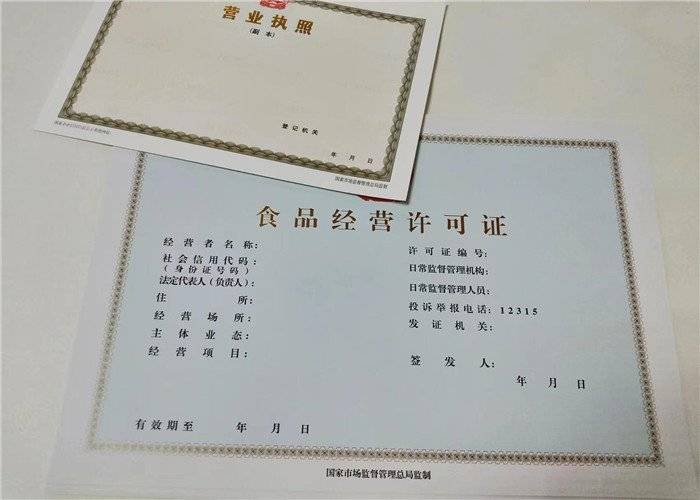 营业执照
(副 本)
登记机关
年 月 日
国家市场监督管理总局监制
食品经营许可证
经营者名称:
社会信用代码:
(身份证号码)
法定代表人(负责人):
住 所:
经营场所:
主体业态:
经营项目:
有效期至 年 月 日
许可证编号:
日常监督管理机构:
日常监督管理人员:
投诉举报电话: 12315
发证机关:
签 发 人:
年 月 日
国家市场监督管理总局监制